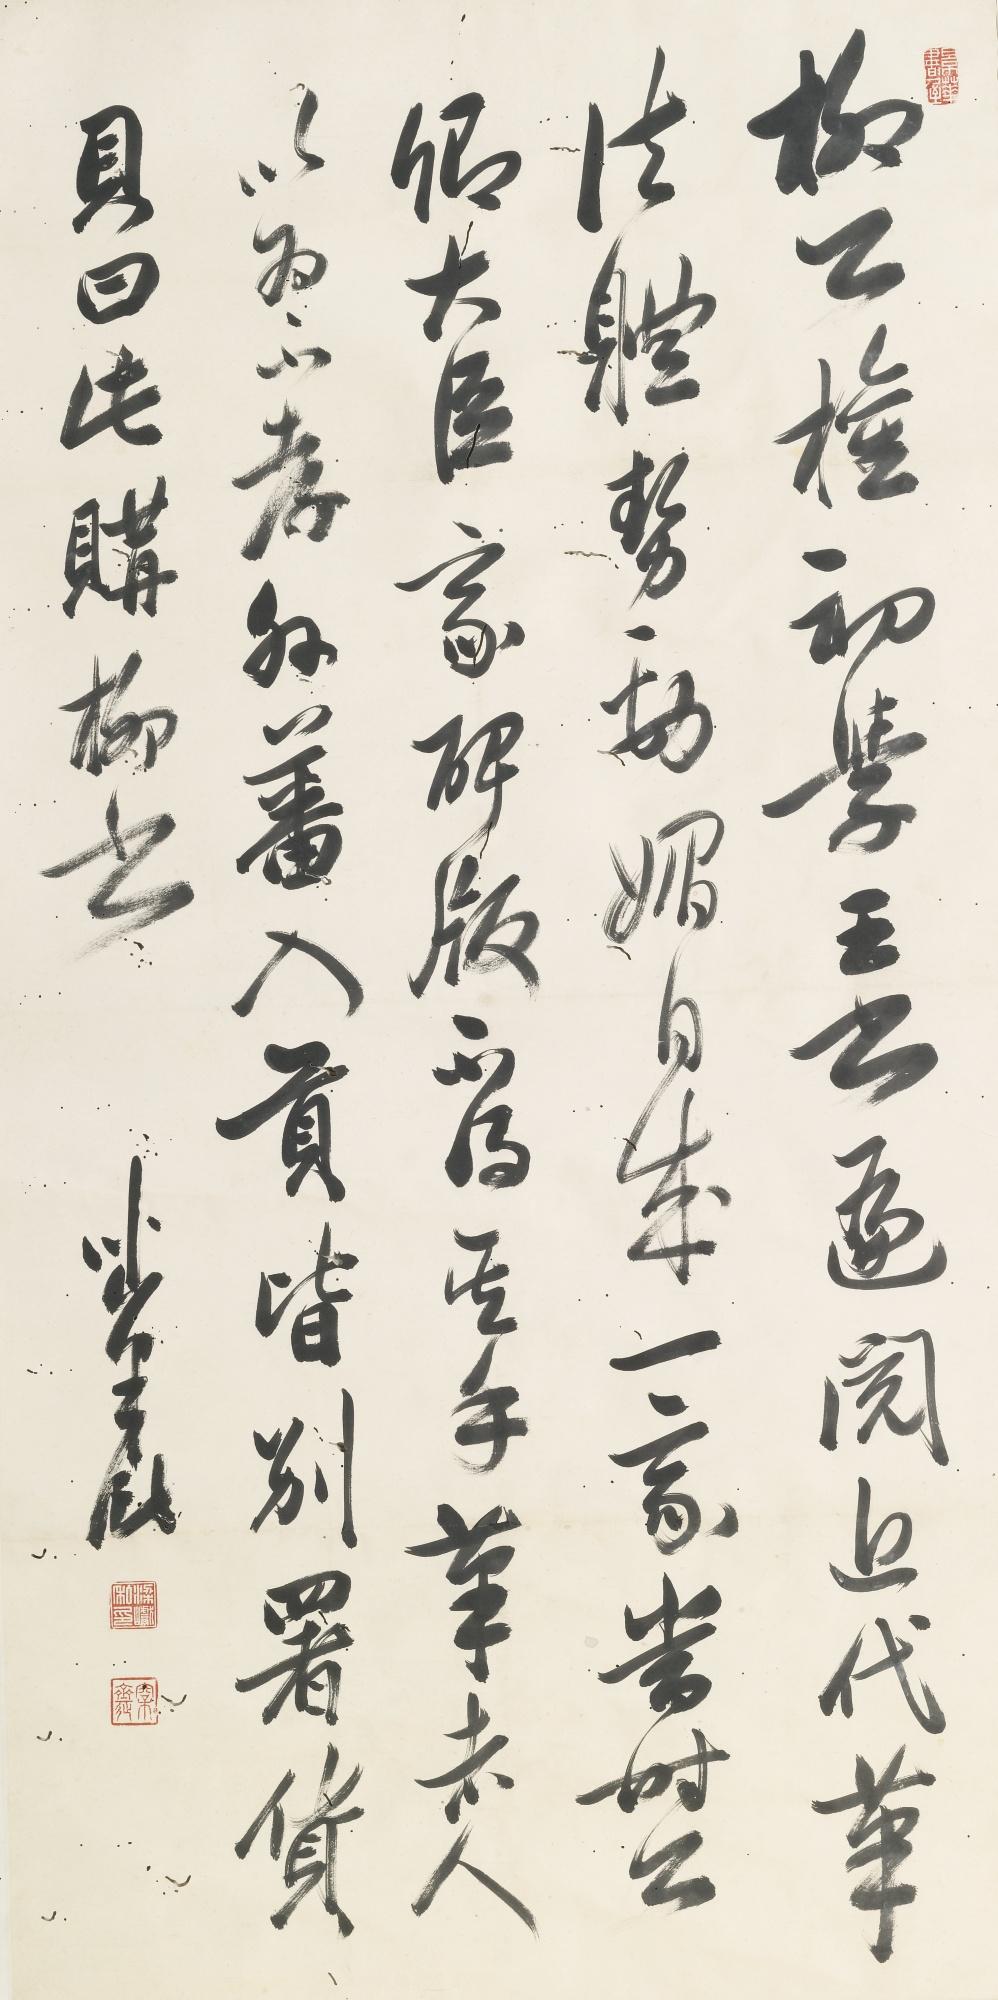 柳公權初學王書遍閱近代筆
法體勢勁媚自成一家當時公
卿大臣家碑版不得其手筆者人
以為不孝外蕃入貢皆別署貨
貝曰此購柳書
梁巘
梁巘私印